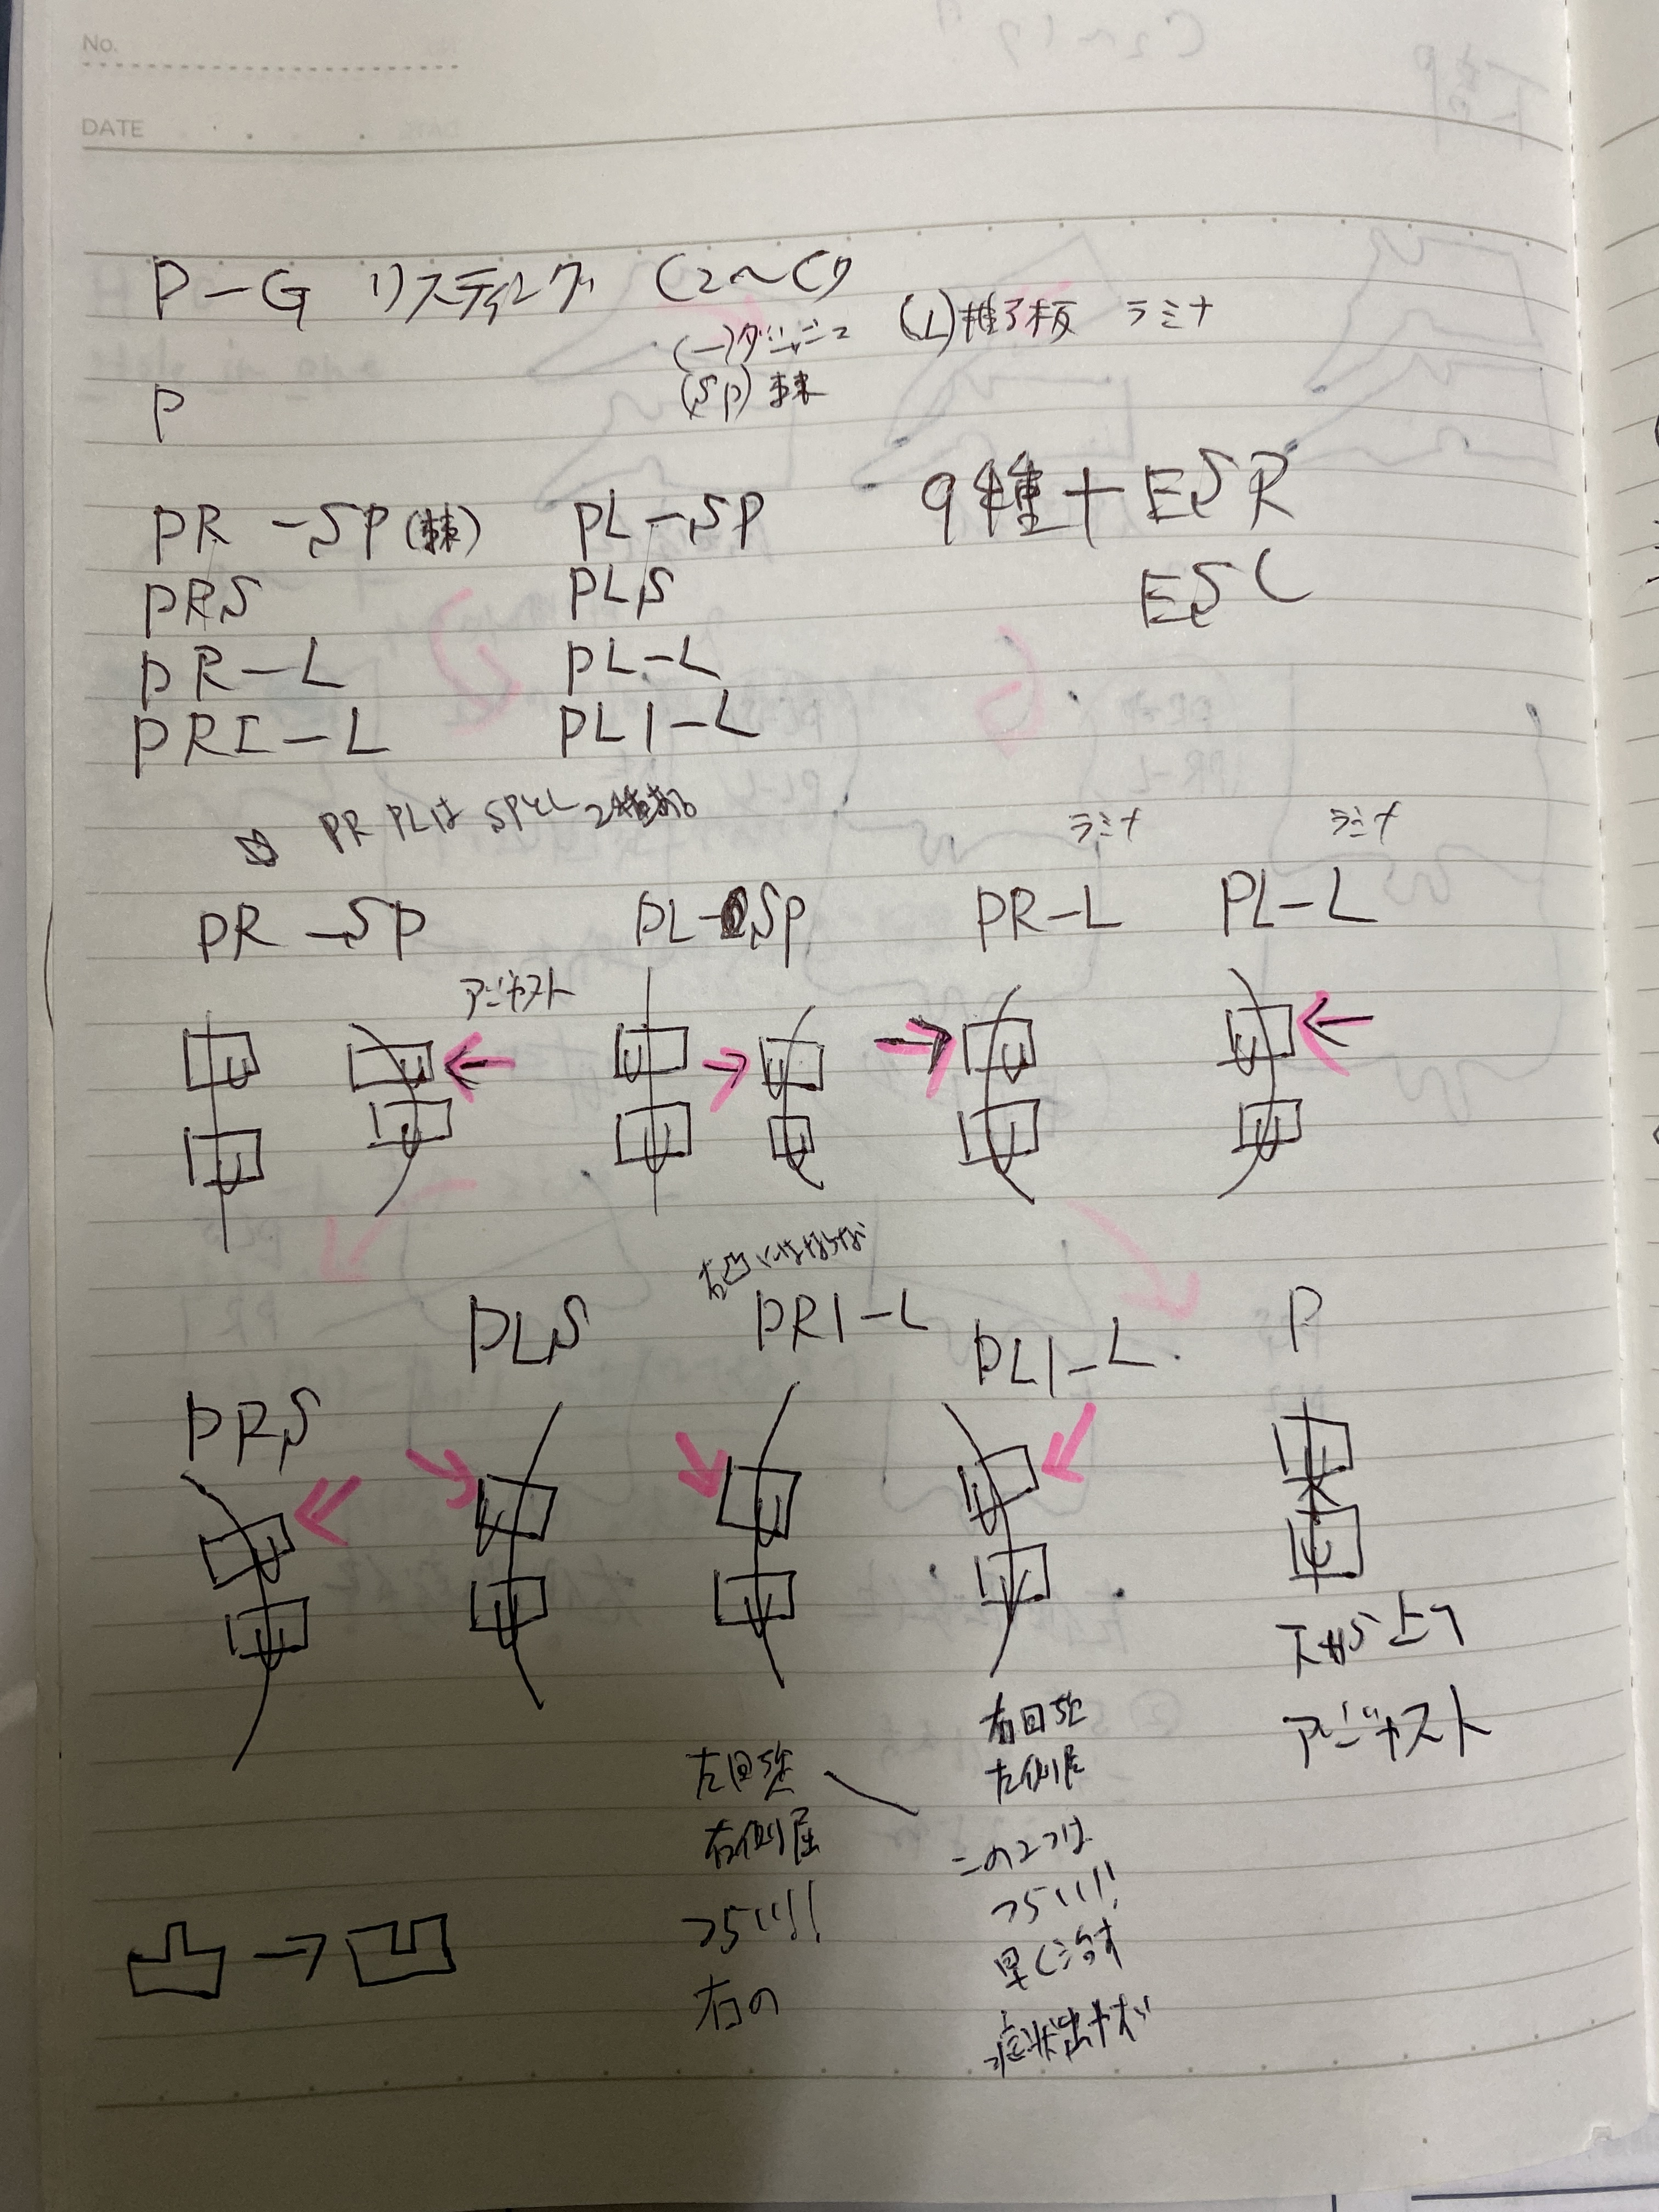 No.
DATE
P-G リスティング C2~C7
(-)ダッシュ (L)椎弓板 ラミナ
(SP) 棘
P
9種+ESR
ESL
PR-SP(棘) PL-SP
PRS PLS
PR-L PL-L
PRI-L PLI-L
PR PLは SPとL 2種ある
ラミナ ラミナ
PR-SP PL-SP PR-L PL-L
アジャスト
右凸にはならない
PLS PRI-L PLI-L P
PRS
下から上へ
アジャスト
左回旋
右側屈
つらい!!
右の
右回旋
左側屈
この2つは
つらい!!
早く治す
症状出やすい